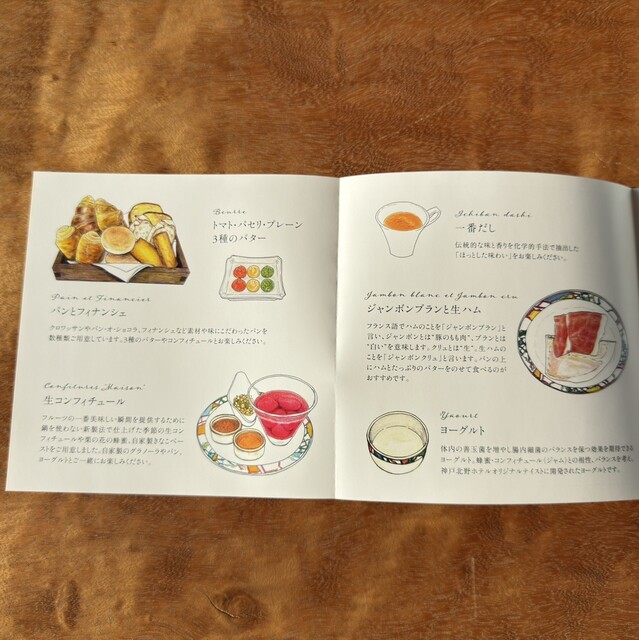 Beurre
トマト・パセリ・プレーン
3種のバター
Pain et Financier
パンとフィナンシェ
クロワッサンやパン・オ・ショコラ、フィナンシェなど素材や味にこだわったパンを
数種類ご用意しています。3種のバターやコンフィチュールとお楽しみください。
Confitures „Maison‟
生コンフィチュール
フルーツの一番美味しい瞬間を提供するために
鍋を使わない新製法で仕上げた季節の生コン
フィチュールや菜の花の蜂蜜、自家製きなこペー
ストをご用意しました。自家製のグラノーラやパン、
ヨーグルトとご一緒にお楽しみください。
Ichiban dashi
一番だし
伝統的な味と香りを化学的手法で抽出した
「ほっとした味わい」をお楽しみください。
Jambon blanc et Jambon cru
ジャンボンブランと生ハム
フランス語でハムのことを「ジャンボンブラン」と
言い、ジャンボンとは“豚のもも肉”、ブランとは
“白い”を意味します。クリュとは“生”。生ハムの
ことを「ジャンボンクリュ」と言います。パンの上
にハムとたっぷりのバターをのせて食べるのが
おすすめです。
Yaourt
ヨーグルト
体内の善玉菌を増やし腸内細菌のバランスを保つ効果を期待できる
ヨーグルト。蜂蜜・コンフィチュール（ジャム）との相性、バランスを考え、
神戸北野ホテルオリジナルテイストに開発されたヨーグルトです。